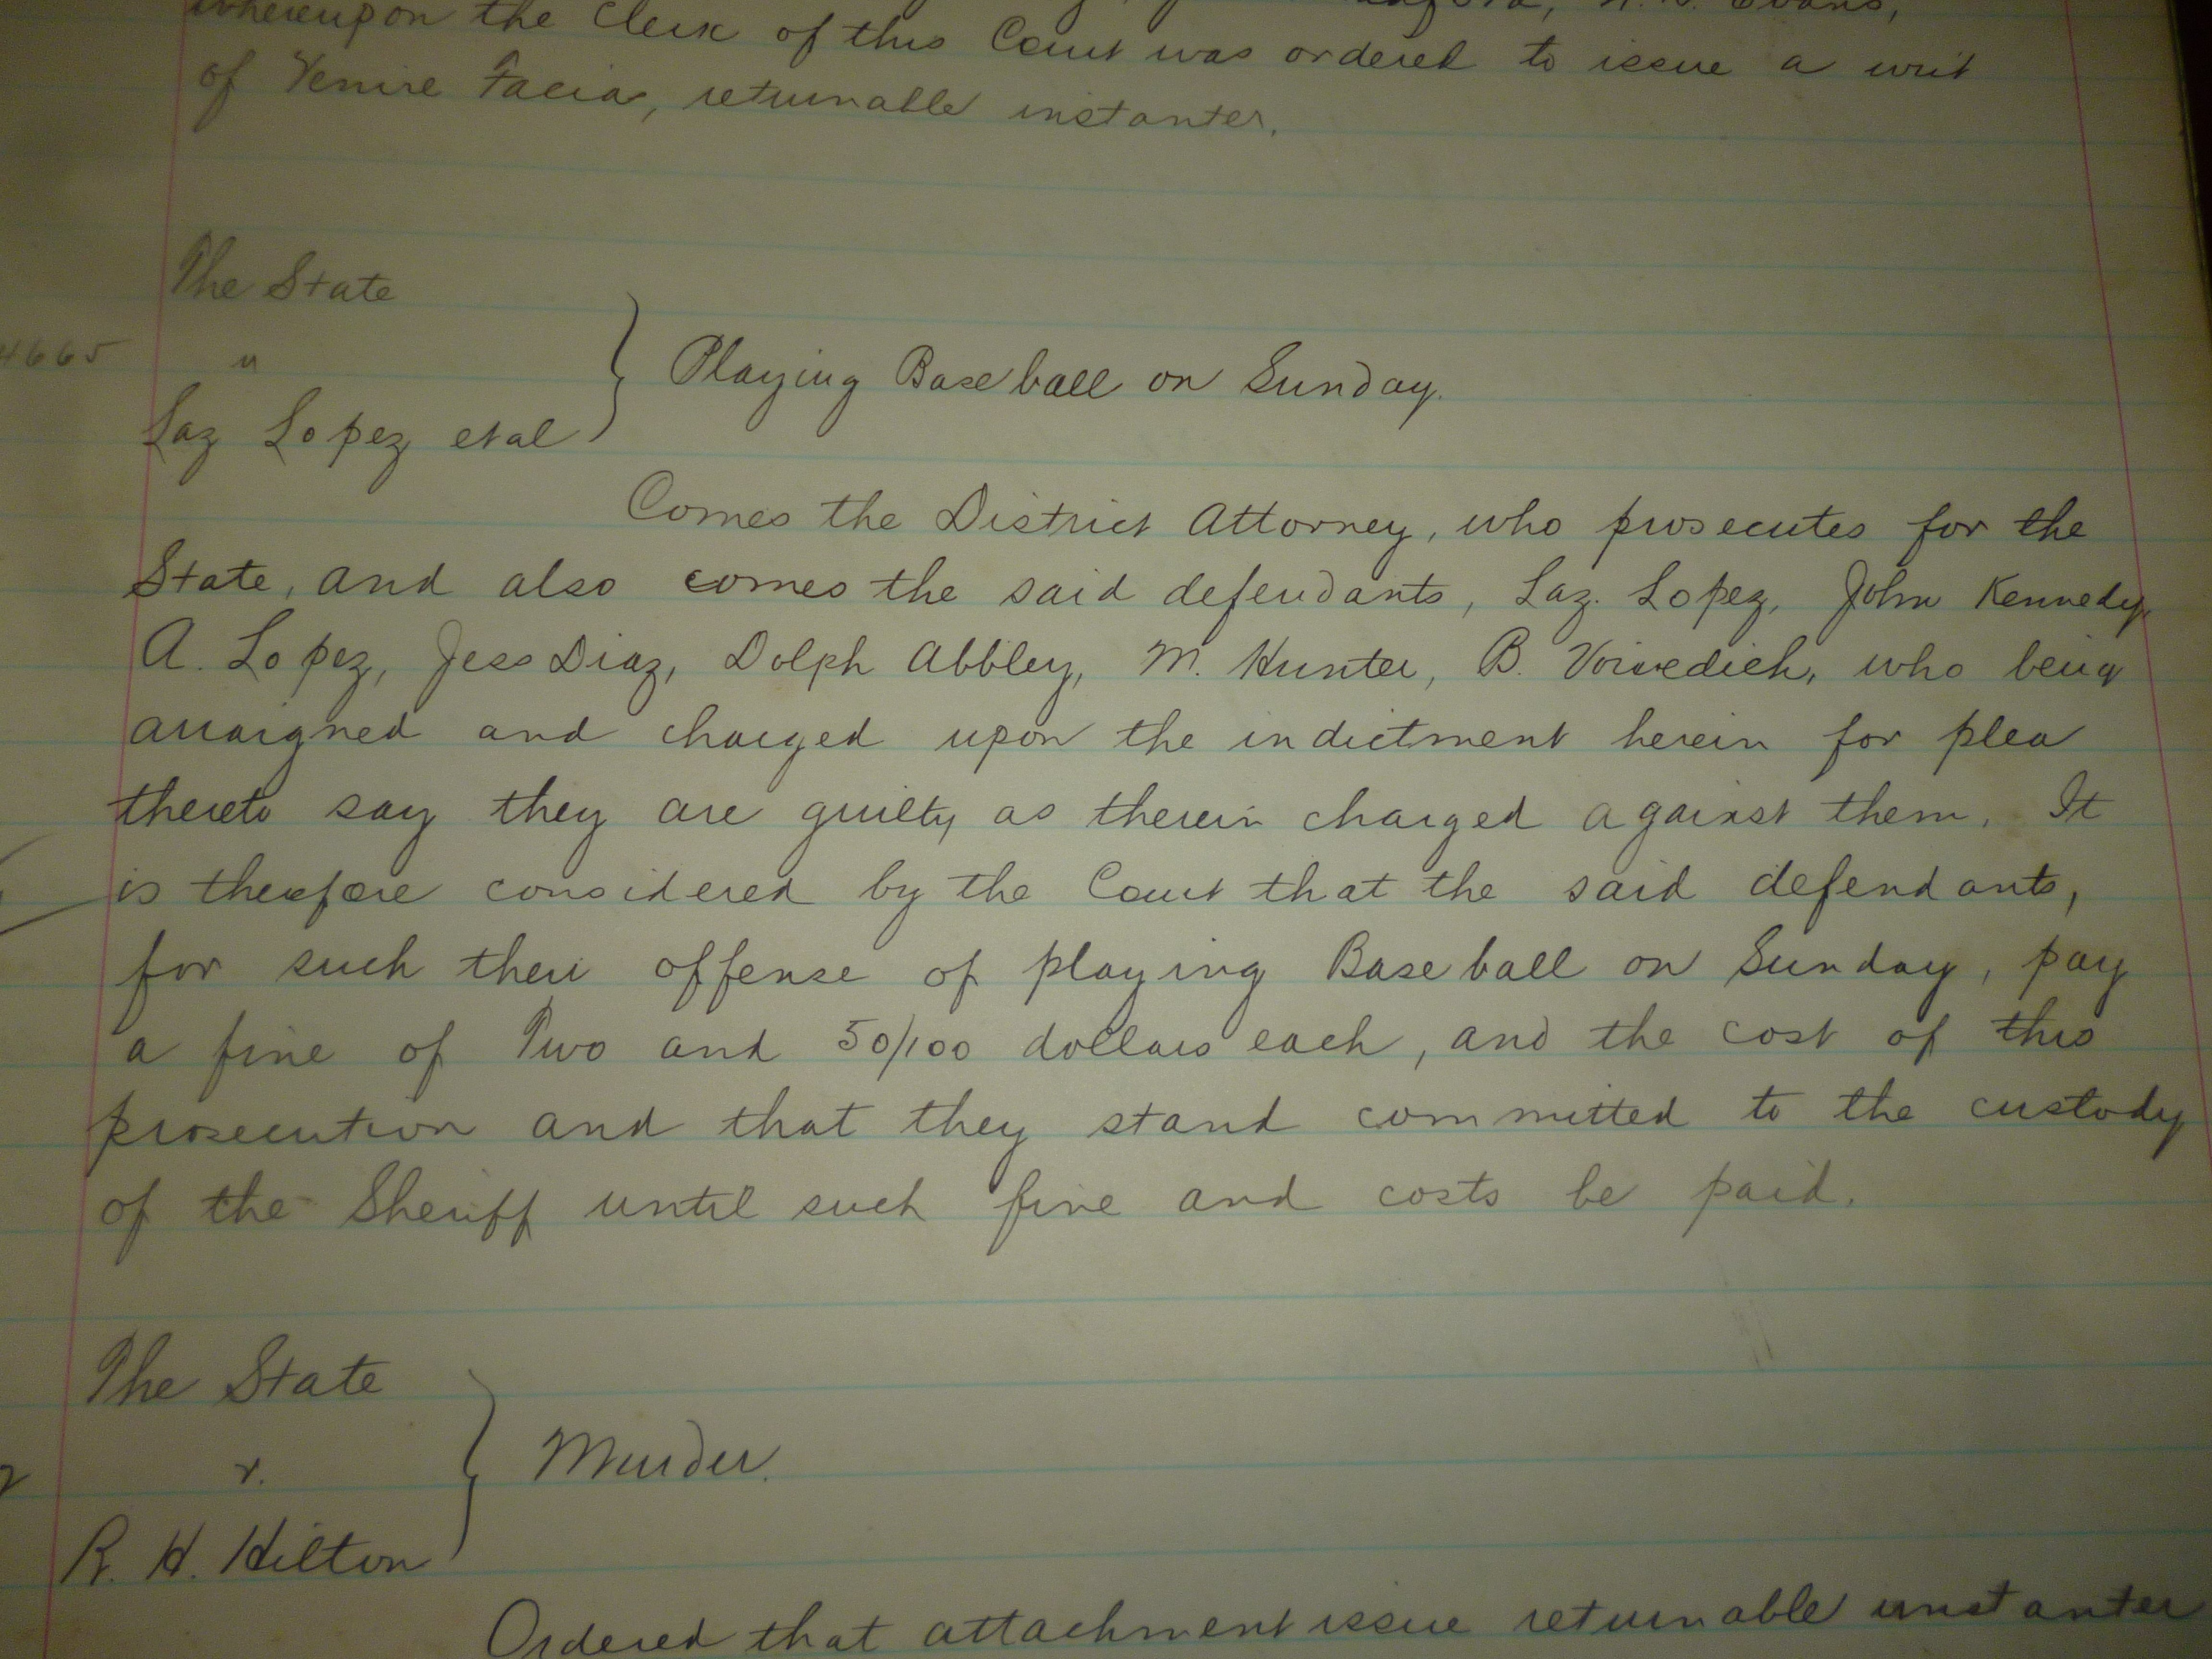 whereupon the Clerk of this Court was ordered to issue a writ
of Venire Facias, returnable instanter.
The State
4665 vs
Laz Lopez et al
Playing Baseball on Sunday.
Comes the District Attorney, who prosecutes for the
State, and also comes the said defendants, Laz. Lopez, John Kennedy,
A. Lopez, Jess Diaz, Dolph Abbley, M. Hunter, B. Voivedich, who being
arraigned and charged upon the indictment herein for plea
thereto say they are guilty as therein charged against them. It
is therefore considered by the Court that the said defendants,
for such their offense of playing Baseball on Sunday, pay
a fine of Two and 50/100 dollars each, and the cost of this
prosecution and that they stand committed to the custody
of the Sheriff until such fine and costs be paid.
The State
v.
R. H. Hilton
Murder.
Ordered that attachment issue returnable instanter